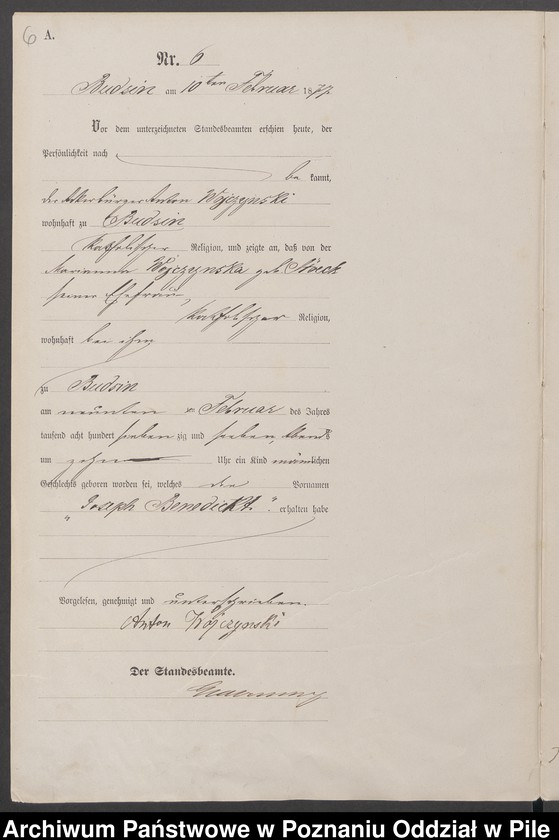 6 A.
Nr. 6
Budsin am 10ten Februar 1877.
Vor dem unterzeichneten Standesbeamten erschien heute, der
Persönlichkeit nach
be kannt,
der Ackerbürger Anton Wojczynski
wohnhaft zu Budsin
katholischer Religion, und zeigte an, daß von der
Marianna Wojczynska geb.
seiner Ehefrau,
katholischer Religion,
wohnhaft bei ihm
zu Budsin
am neunten Februar des Jahres
tausend acht hundert sieben zig und sieben, Abends
um zehn Uhr ein Kind männlichen
Geschlechts geboren worden sei, welches die Vornamen
„Joseph Benedickt." erhalten habe
Vorgelesen, genehmigt und unterschrieben.
Anton Wojczynski
Der Standesbeamte.
Archiwum Państwowe w Poznaniu Oddział w Pile